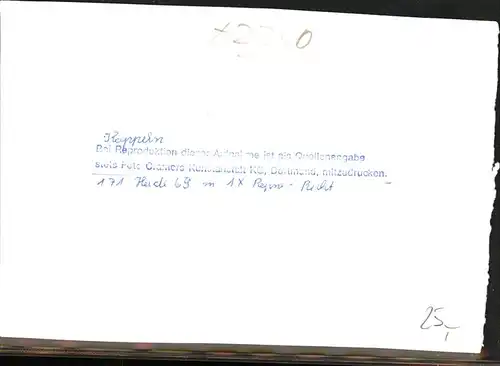 Kappeln
Bei Reproduktion dieser Aufnahme ist die Quellenangabe
stets Foto Cramers Kunstanstalt KG, Dortmund, mitzudrucken.
171 69 m 1X Repro - Recht
25,-